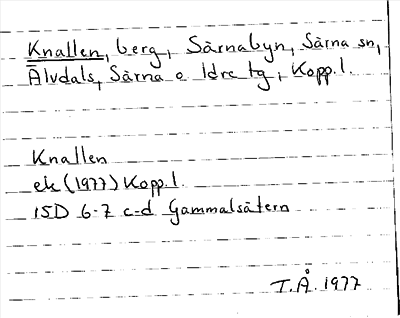 Knallen, berg, Särnabyn, Särna sn,
Älvdals, Särna o Idre tg, Kopp.l.
Knallen
ek (1977) Kopp.l.
15D 6-7 c-d Gammalsätern
T.Å. 1977